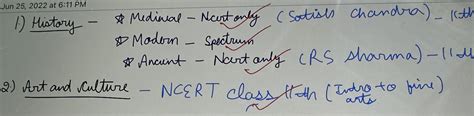 Jun 25, 2022 at 6:11 PM
1) History - ☆ Medinal - Ncert only (Satish Chandra) - 11th
☆ Modern - Spectrum
☆ Ancient - Ncert only (RS Sharma) - 11th
2) Art and Culture - NCERT class 11th (Intro to fine arts)